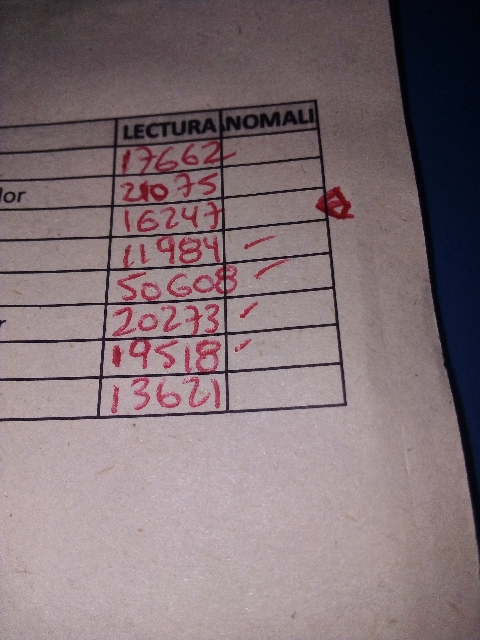 LECTURA NOMALI
17662
lor 21075
16247
11984
50608
r 20273
19518
13621